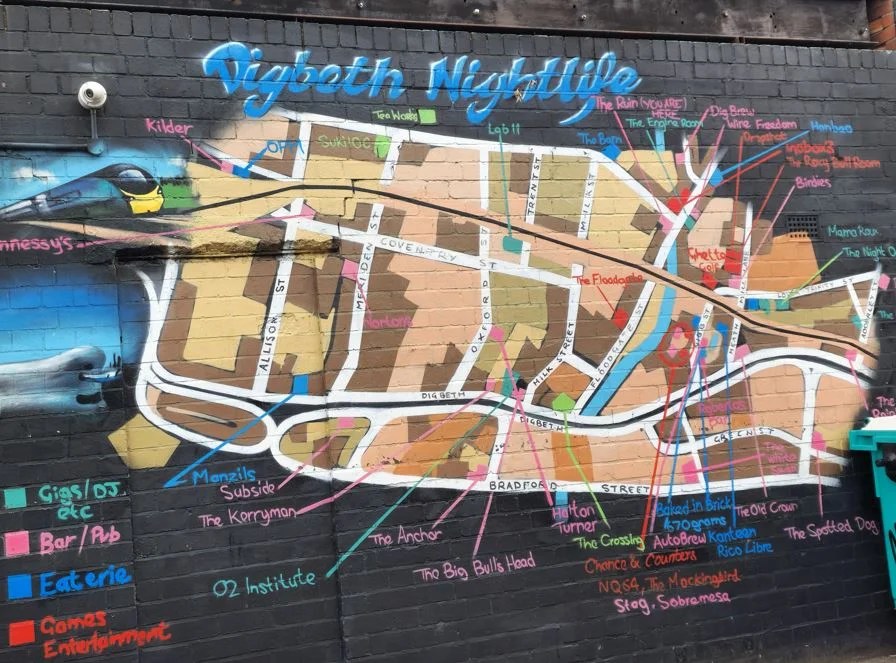 Digbeth Nightlife
Kilder
OPM
Tea Works
Suki10C
Lab 11
The Ruin (YOU ARE HERE)
The Engine Room
The Barn
Dig Brew
Wine Freedom
Dropshot
Hanbao
Inobox3
The Roxy Ball Room
Birdies
nnessy's
Mama Roux
The Night O
TRENT ST
MILK ST
COVENTRY ST
MERIDEN ST
ALLISON ST
OXFORD ST
Nortons
The Floodgate
Ghetto Golf
FLOODGATE ST
MILK STREET
TRINITY ST
HEATH
DIGBETH
DIGBETH
GREEN ST
BRADFORD STREET
Manzils
Subside
The Kerryman
O2 Institute
The Anchor
The Big Bulls Head
Halton Turner
The Crossing
Baked in Brick
670grams
AutoBrew
Kanteen
Rico Libre
Chance & Counters
NQ64, The Mockingbird
Stag, Sobremesa
The Old Crown
The Spotted Dog
The
The
Gigs/DJ
etc
Bar/Pub
Eaterie
Games
Entertainment